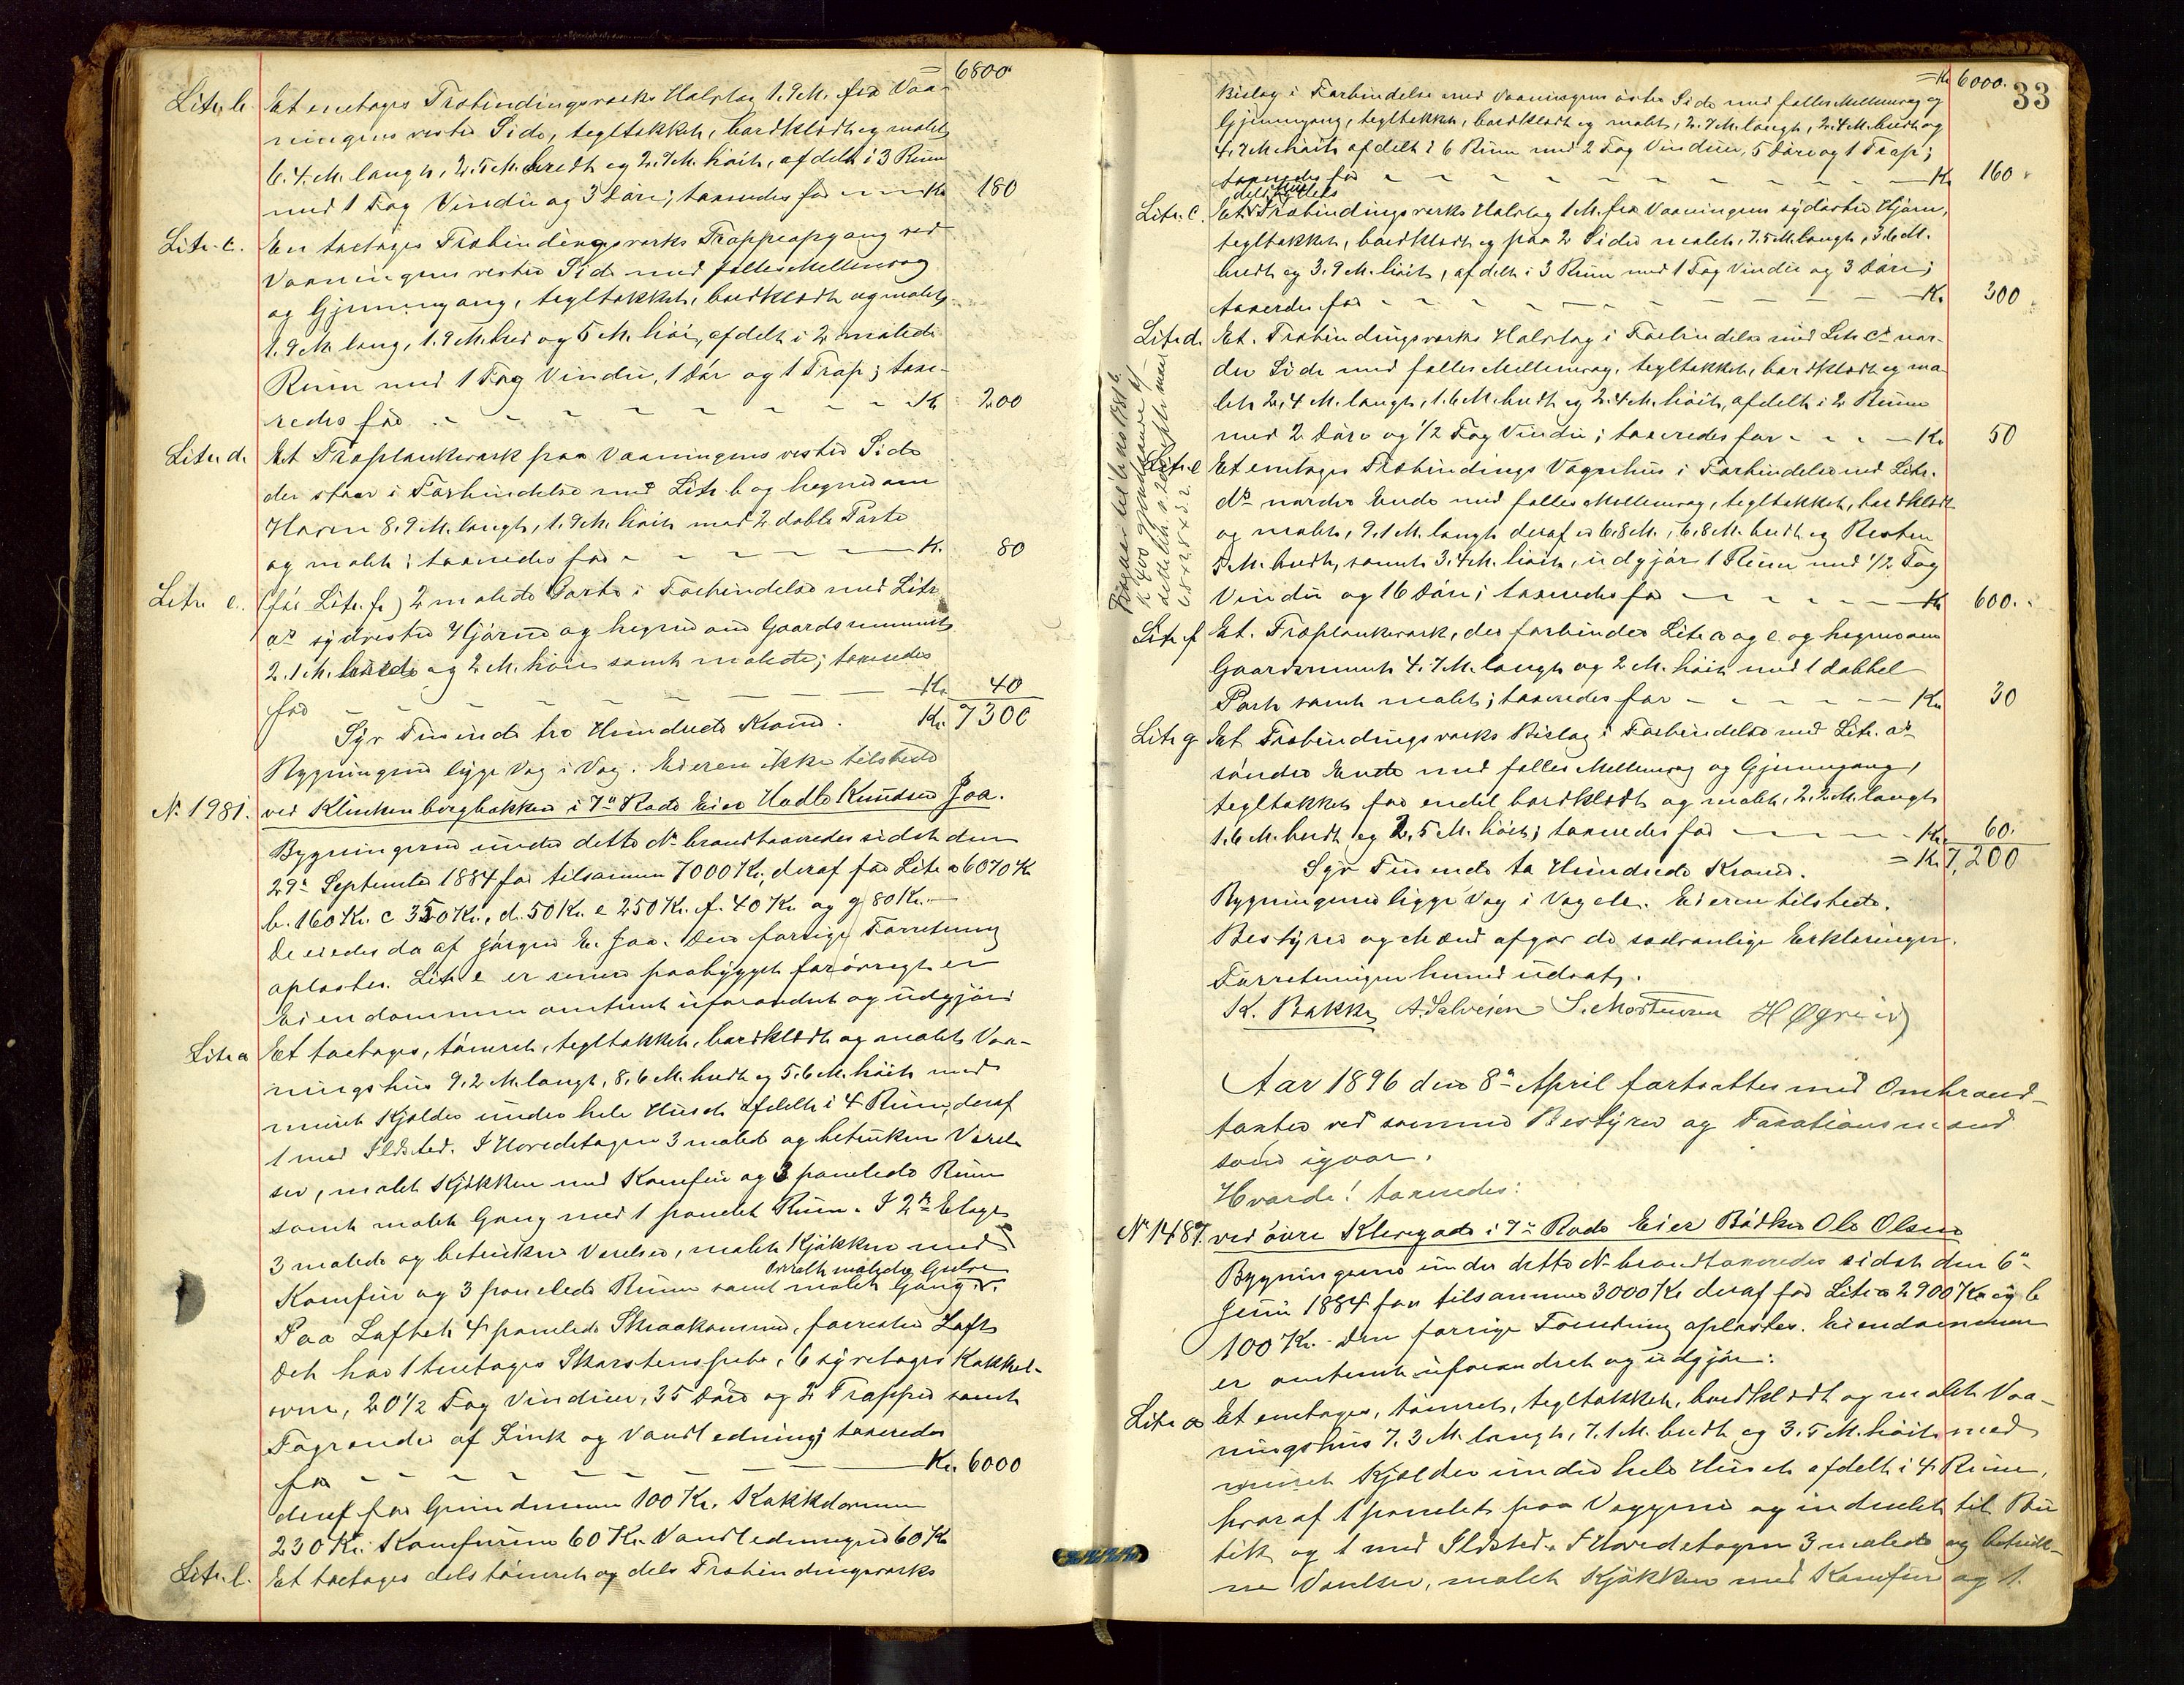 = 6800
Litr. b. Et enetages Træbindingsværks Halvtag 1.9 M. fra Vaa-
ningens vestre Side, tegltækket, bordklædt og malet
6.4. M. langt, 2.5 M. bredt og 2.7 M. høit, afdelt i 3 Rum
med 1 Fag Vindu og 3 Døre; taxeredes for — Kr. 180
Litr. c. En toetages Træbindingsværks Trappeopgang ved
Vaaningens vestre Side med fælles Mellemvæg
og Gjennemgang, tegltækket, bordklædt og malet,
1.9 M. lang, 1.9 M. bred og 5 M. høi, afdelt i 2 malede
Rum med 1 Fag Vindu, 1 Dør og 1 Trap; taxe-
redes for - - - Kr. 200
Litr. d. Et Træplankeværk paa Vaaningens vestre Side
der staar i Forbindelse med Litr. b og hegner om
Haven 8.9 M. langt, 1.9 M. høit med 2 doble Porte
og malet; taxeredes for - - - Kr. 80
Litr. e. (før Litr. f.) 2 malede Porte i Forbindelse med Litr.
a's sydvestre Hjørne og hegner om Gaardsrummet
2.1 M. brede og 2 M. høie samt malede; taxeredes
for - - - Kr. 40
Syv Tusinde tre Hundrede Kroner. Kr. 7300
Bygningerne ligge Væg i Væg. Eieren ikke tilstede
N. 1981. ved Klinkenbergbakken i 7de Rode Eier Hadle Knudsen Joa.
Bygningerne under dette No brandtaxeredes sidst den
29de September 1884 for tilsammen 7000 Kr., deraf for Litr a 6070 Kr
b. 160 Kr. c 350 Kr., d. 50 Kr. e 250 Kr. f. 40 Kr. og g 80 Kr.
De eiedes da af Jørgen E. Joa. Den forrige Forretning
oplæstes. Litr. e er senere paabygget forøvrigt er
Eiendommen omtrent uforandret og udgjør:
Litr a Et toetages, tømret, tegltækket, bordklædt og malet Vaa-
ningshus 9.2 M. langt, 8.6 M. bredt og 5.6 M. høit med
muret Kjælder under hele Huset afdelt i 4 Rum, deraf
1 med Ildsted. I Hovedetagen 3 malede og betrukne Værel-
ser, malet Kjøkken med Komfur og 3 panelede Rum
samt malet Gang med 1 panelet Rum. I 2den Etage
3 malede og betrukne Værelser, malet Kjøkken med
overalt malede Gulve
Komfur og 3 panelede Rum samt malet Gang v.
Paa Loftet 4 panelede Skraakammere, forresten Loft
Det har 1 treetages Skorstenspibe, 6 syvetages Kakkel-
ovne, 20 1/2 Fag Vinduer, 35 Døre og 2 Trapper samt
Tagrender af Zink og Vandledning; taxeredes
for - - - Kr. 6000
deraf for Grundmuren 100 Kr. Kakkelovnene
230 Kr. Komfurene 60 Kr. Vandledningen 60 Kr
Litr. b. Et toetages dels tømret og dels Træbindingsværks
= Kr 6000. 33
Bislag i Forbindelse med Vaaningens østre Side med fælles Mellemvæg og
Gjennemgang, tegltækket, bordklædt og malet, 2.7 M. langt, 2.4 M. bredt og
4.7 M. høit afdelt i 6 Rum med 2 Fag Vinduer, 5 Døre og 1 Trap;
taxeredes for - - - Kr 160
Litr. c. Et Træbindingsværks Halvtag 1 M. fra Vaaningens sydøstre Hjørne,
tegltækket, bordklædt og paa 2 Sider malet, 7.5 M. langt, 3.6 M.
bredt og 3.9 M. høit, afdelt i 3 Rum med 1 Fag Vindu og 3 Døre;
taxeredes for - - - Kr. 300
Litr d. Et Træbindingsværks Halvtag i Forbindelse med Litr c's nor-
dre Side med fælles Mellemvæg, tegltækket, bordklædt og ma-
let 2.4 M. langt, 1.6 M. bredt og 2.4 M. høit, afdelt i 2 Rum
med 2 Døre og 1/2 Fag Vindu; taxeredes for - - - Kr 50
Litr. e Et enetages Træbindings Vognhus i Forbindelse med Litr.
d's nordre Ende med fælles Mellemvæg, tegltækket, bordklædt
og malet, 9.1 M. langt deraf er 6.8 M., 6.8 M. bredt og Resten
5 M. bredt, samt 3.4 M. høit, udgjør 1 Rum med 1/2 Fag
Vindu og 16 Døre; taxeredes for — Kr 600.
Litr f Et Træplankeværk, der forbinder Litr a og e og hegner om
Gaardsrummet 4.7 M. langt og 2 M. høit med 1 dobbel
Port samt malet; taxeredes for - - - Kr 30
Litr g Et Træbindingsværks Bislag i Forbindelse med Litr. a's
søndre Ende med fælles Mellemvæg og Gjennemgang,
tegltækket for endel bordklædt og malet, 2.2 M. langt
1.6 M. bredt og 2.5 M. høit; taxeredes for — Kr. 60.
Syv Tusende to Hundrede Kroner. = Kr 7,200
Bygningerne ligge Væg i Væg etc. Eieren tilstede.
Bestyrer og Mænd afgav de sædvanlige Erklæringer.
Forretningen hermed udsat.
K. Bakke A. Salvesen S. Mortensen H Øgreid
Aar 1896 den 8de April fortsattes med Ombrand-
taxter ved samme Bestyrer og Taxationsmænd
som igaar.
Hvorda! taxeredes:
No 1487. ved øvre Klevegade i 7de Rode Eier Bødker Ole Olsen
Bygningerne under dette No brandtaxeredes sidst den 6te
Juni 1884 for tilsammen 3000 Kr deraf for Litr a 2900 Kr og b
100 Kr. Den forrige Forretning oplæstes. Eiendommen
er omtrent uforandret og udgjør:
Litr a Et enetages, tømret, tegltækket, bordklædt og malet Vaa-
ningshus 7.3 M. langt, 7.1 M. bredt og 3.5 M. høit med
muret Kjælder under hele Huset afdelt i 4 Rum,
hvoraf 1 panelet paa Væggene og indredet til Bu
tik og 1 med Ildsted. I Hovedetagen 3 malede og betruk-
ne Værelser, malet Kjøkken med Komfur og 1.